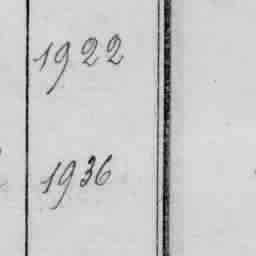 1922
1936